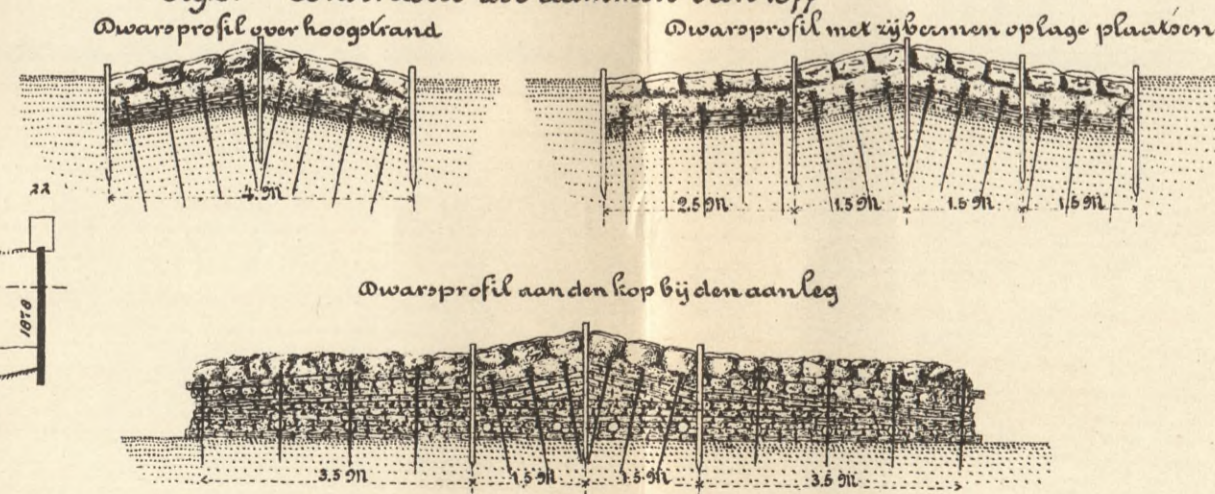 Dwarsprofil over hoogstrand
Dwarsprofil met zijbermen op lage plaatsen
4. M
2.5 M
1.5 M
1.5 M
1.5 M
22
1878
Dwarsprofil aan den kop bij den aanleg
3.5 M
1.5 M
1.5 M
3.5 M